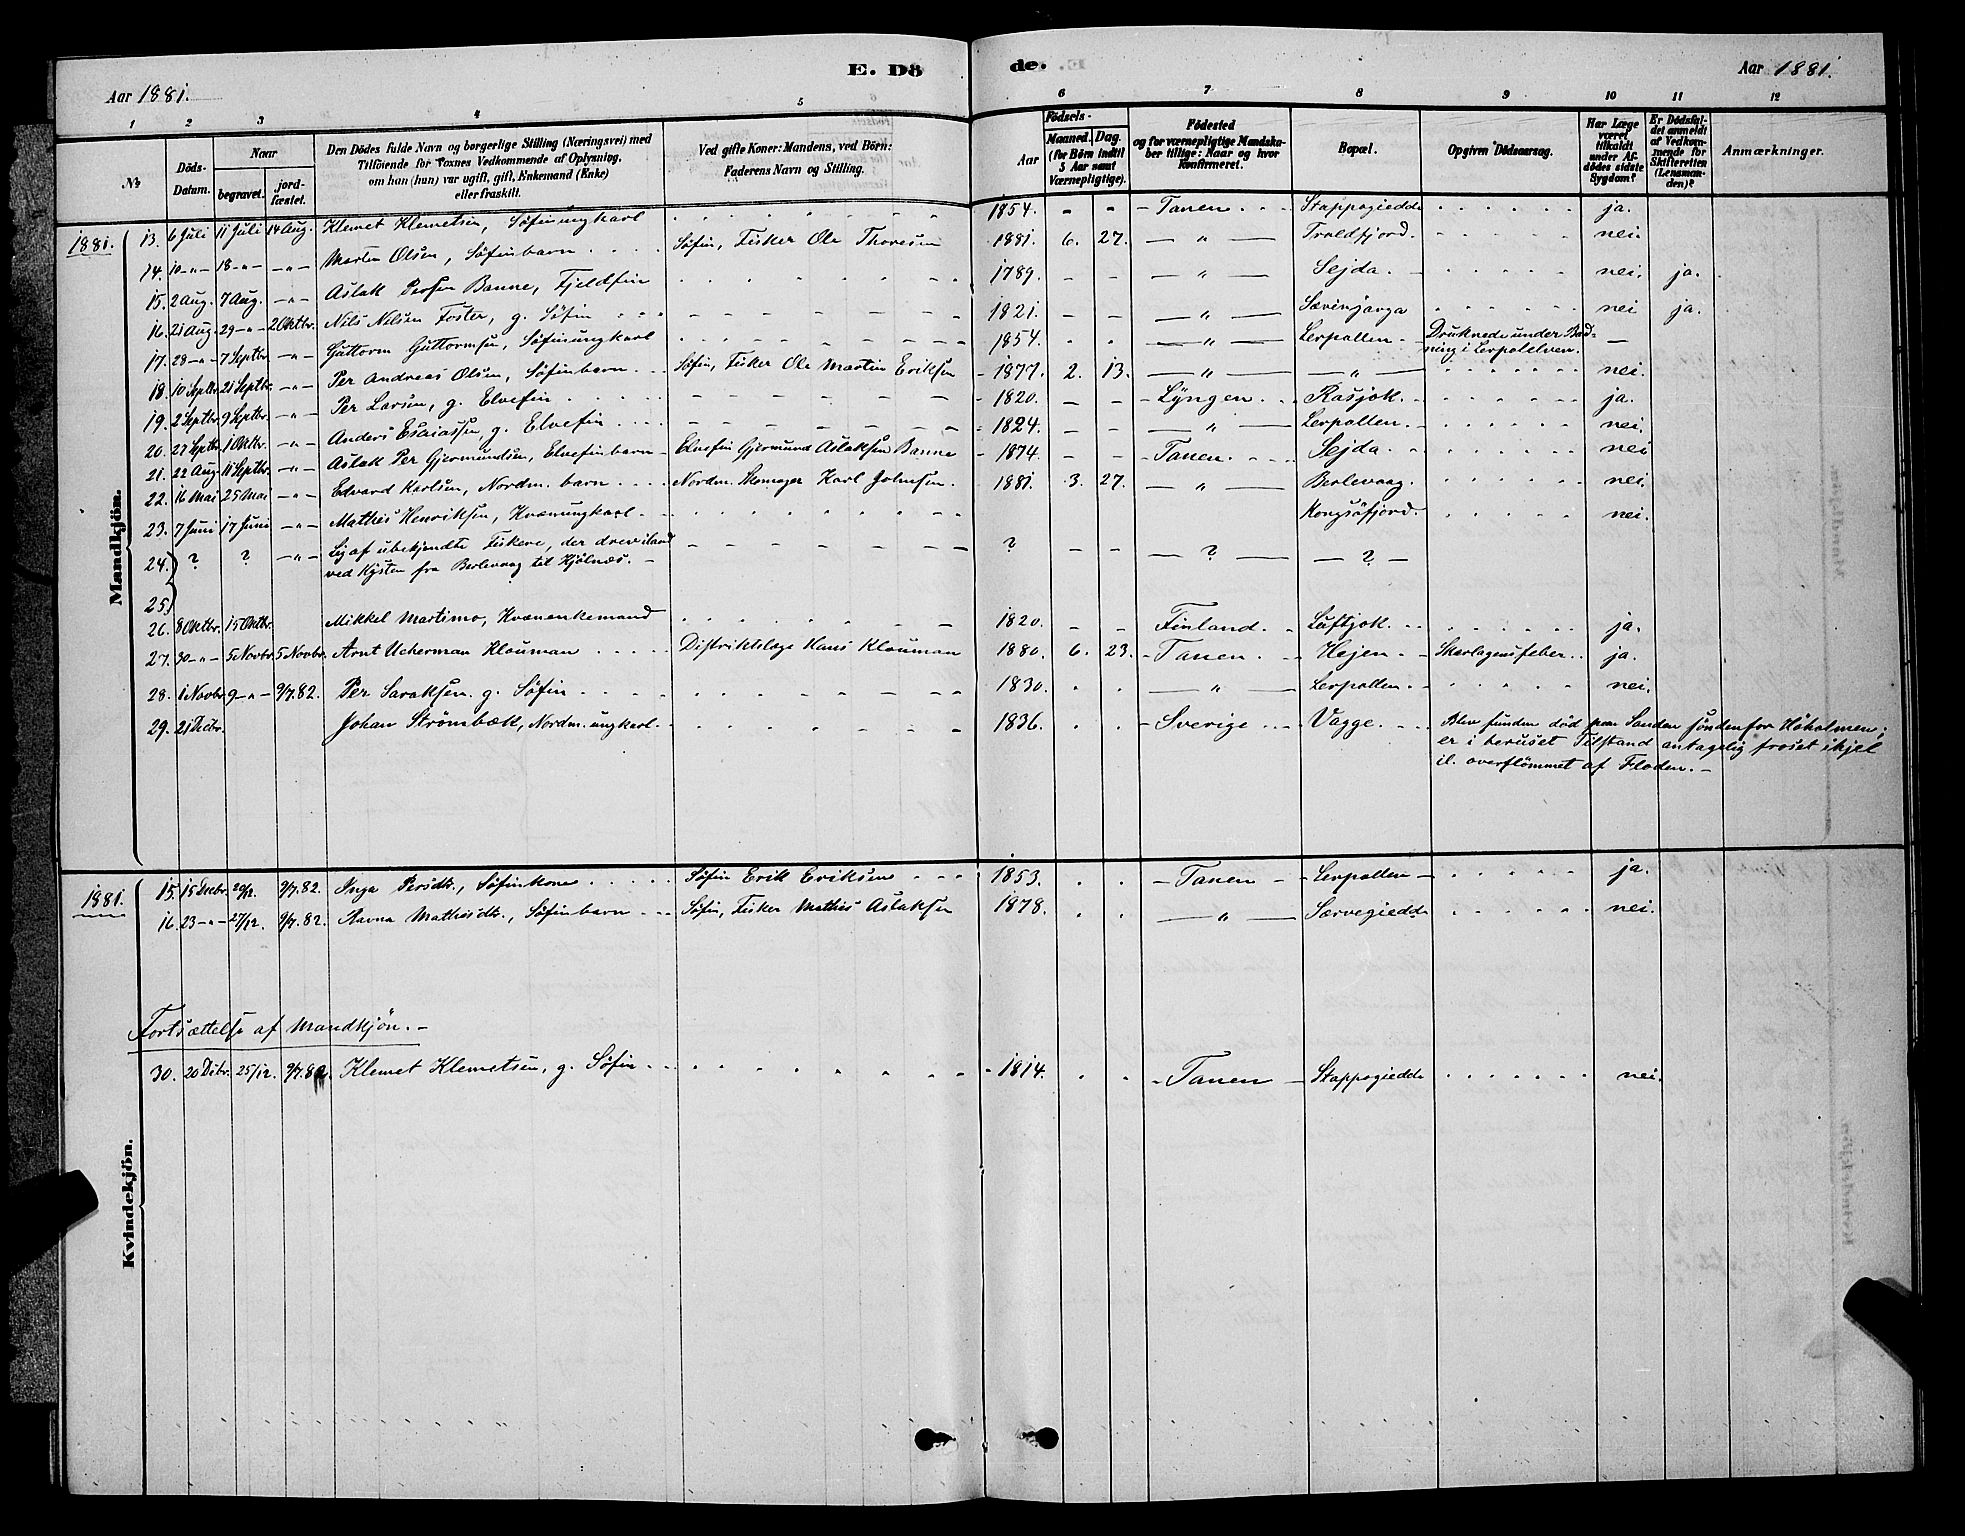 E. Dö de.
Aar 1881. Aar 1881.
1 2 3 4 5 6 7 8 9 10 11 12
№ Döds-Datum. Naar begravet. jord-fæstet. Den Dödes fulde Navn og borgerlige Stilling (Næringsvei) med Tilföiende for Voxnes Vedkommende af Oplysning, om han (hun) var ugift, gift, Enkemand (Enke) eller fraskilt. Ved gifte Koner: Mandens, ved Börn: Faderens Navn og Stilling. Födsels- Aar Maaned. Dag. (for Börn indtil 5 Aar samt Værnepligtige). Födested og for værnepligtige Mandskaber tillige: Naar og hvor konfirmeret. Bopæl. Opgiven Dödsaarsag. Har Læge været tilkaldt under Afdödes sidste Sygdom? Er Dödsfaldet anmeldt af Vedkommende for Skifteretten (Lensmanden)? Anmærkninger.
Mandkjön.
1881. 13. 6 Juli 11 Juli 14 Aug. Klemet Klemetsen, Söfinungkarl 1854. - - Tanen Stappogiedde ja.
14. 10 -"- 18 -"- -"- Morten Olsen, Söfinbarn Söfin, Fisker Ole Thoresen 1881. 6. 27. -"- Troldfjord. nei.
15. 2 Aug. 7 Aug. -"- Aslak Persen Banne, Fjeldfin 1789. - - -"- Sejda. nei. ja.
16. 21 Aug. 29 -"- 2 Oktbr. Nils Nilsen Foster, g. Söfin 1821. - - -"- Sævinjarga nei ja.
17. 28 -"- 7 Septbr. -"- Guttorm Guttormsen, Söfinungkarl 1854. -"- Lerpollen Druknede under Bad-
ning i Lerpolelven. -
18. 10 Septbr. 21 Septbr. -"- Per Andreas Olsen, Söfinbarn Söfin, Fisker Ole Martin Eriksen 1877. 2. 13. -"- -"- nei.
19. 2 Septbr. 9 Septbr. -"- Per Larsen, g. Elvefin 1820. - - Lyngen Rasjok. ja.
20. 27 Septbr. 1 Oktbr. -"- Anders Esaiassen, g. Elvefin 1824. - - -"- Lerpollen. nei.
21. 22 Aug. 11 Septbr. -"- Aslak Per Gjermundsen, Elvefinbarn Elvefin Gjermund Aslaksen Banne 1874. - - Tanen. Sejda. nei
22. 16 Mai 25 Mai -"- Edvard Karlsen, Nordm. barn Nordm. Skomager Karl Johnsen. 1881. 3. 27. -"- Berlevaag. nei.
23. 7 Juni 17 Juni -"- Mathis Henriksen, Kvænungkarl ? Kongsöfjord. nei.
24. ? ? -"- Lig af ubekjendte Fiskere, der drev iland ? - - - ? - - ? -
ved Kysten fra Berlevaag til Kjölnæs. -
25.
26. 8 Oktbr. 15 Oktbr. Mikkel Martimo, Kvænenkemand 1820. - - Finland. Luftjok. ja.
27. 30 -"- 5 Novbr. 5 Novbr. Arnt Ucherman Klouman Distriktslæge Hans Klouman 1880. 6. 23. Tanen. Hejen Skarlagensfeber. ja.
28. 1 Novbr. 9 -"- 9/7. 82. Per Savaksen. g. Söfin 1830. -"- Lerpollen. nei.
29. 21 Decbr. Johan Strömbæk, Nordm. ungkarl. 1836. Sverige Vagge. Blev funden död paa Sanden söndenfor Höholmen;
er i beruset Tilstand antagelig froset ihjel
il. overflömmet af Floden. -
Kvindekjön.
1881. 15. 15 Decbr. 20/12. 9/7. 82. Inga Persdtr., Söfinkone Söfin Erik Eriksen 1853. Tanen Lerpollen ja.
16. 23 -"- 27/12. 9/7. 82. Aavna Mathisdtr., Söfinbarn Söfin, Fisker Mathis Aslaksen 1878. -"- Særvegiedde nei.
Fortsættelse af Mandkjön. -
30. 20 Dcbr. 25/12. 9/7. 82. Klemet Klemetsen, g. Söfin 1814. Tanen Stappogiedde nei.